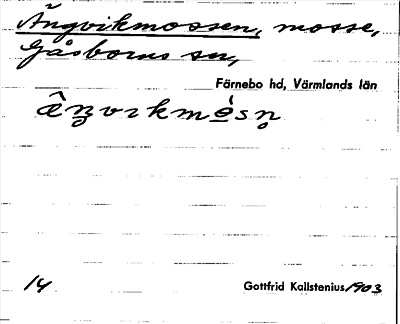 Ängvikmossen, mosse,
Gåsborns sn,
Färnebo hd, Värmlands län
14
Gottfrid Kallstenius 1903